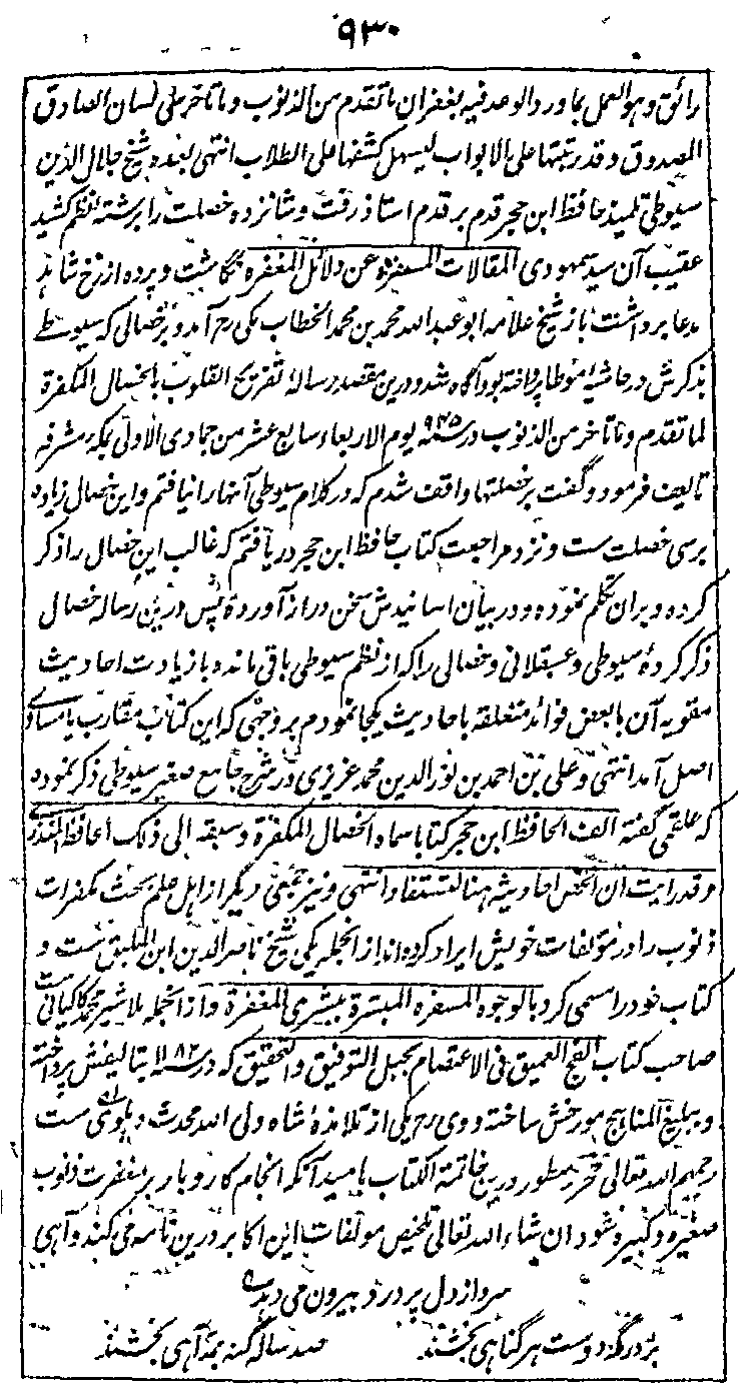 ۹۳۰
رائق وهو العمل بما ورد الوعد فیه بغفران ما تقدم من الذنوب وما تاخر علی لسان الصادق
المصدوق وقد رتبتها علی الابواب لیسهل کشفها علی الطلاب انتهی بعده شیخ جلال الدین
سیوطی تلمیذ حافظ ابن حجر قدم بر قدم استاذ رفت و شانزده خصلت را برشته نظم کشید
عقیب آن سید سمهودی المقالات المسفرة عن دلائل المغفره نگاشت و پرده از رخ شاهد
مدعا برداشت باز شیخ علامه ابو عبد الله محمد بن محمد الخطاب مکی رح آمد و بر خصالی که سیوطی
بذکرش در حاشیه موطا پرداخته بود آگاه شد و درین مقصد رساله تفریح القلوب بالخصال المکفرة
لما تقدم وما تاخر من الذنوب در سنه ۹۴۵ یوم الاربعاء سابع عشر من جمادی الاولی بمکه مشرفه
تالیف فرمود و گفت بر خصلتها واقف شدم که در کلام سیوطی آنها را نیافتم و این خصال زیاده
بر سی خصلت ست و نزد مراجعت کتاب حافظ ابن حجر دریافتم که غالب این خصال را ذکر
کرده و بران تکلم نموده و در بیان اسانیدش سخن دراز آورده پس درین رساله خصال
ذکر کردهٔ سیوطی و عسقلانی و خصالی را که از نظم سیوطی باقی مانده با زیادت احادیث
مقویه آن با بعض فوائد متعلقه باحادیث یکجا نمودم بر وجهی که این کتاب مقارب یا مساوی
اصل آمد انتهی و علی بن احمد بن نور الدین محمد عزیزی در شرح جامع صغیر سیوطی ذکر نموده
که علقمی گفته الف الحافظ ابن حجر کتابا سماه الخصال المکفرة وسبقه الی ذلک الحافظ المنذری
وقد رایت ان الخص احادیثه هنا لتستفاد انتهی و نیز جمعی دیگر از اهل علم بحث مکفرات
ذنوب را در مؤلفات خویش ایراد کرده اند از انجمله یکی شیخ ناصر الدین ابن الملیق ست و
کتاب خود را مسمی کرد بالوجوه المسفره المبشرة ببشری المغفرة و از انجمله ملا شیر محمد ست
صاحب کتاب الفج العمیق فی الاعتصام بحبل التوفیق والتحقیق که در سنه ۱۱۸۲ بتالیفش پرداخته
و ببلیغ المناهج مورخش ساخته و وی رح یکی از تلامذهٔ شاه ولی الله محدث دهلوی ست
رحمهم الله تعالی محرر سطور درین خاتمة الکتاب بامید آنکه انجام کاروبار بر مغفرت ذنوب
صغیره و کبیره شود ان شاء الله تعالی تلخیص مولفات این اکابر درین نامه می کند و آهی
سرد از دل پر درد بیرون می دهد
بر درگه دوست هر گناهی بخشند صد ساله گنه بمد آهی بخشند